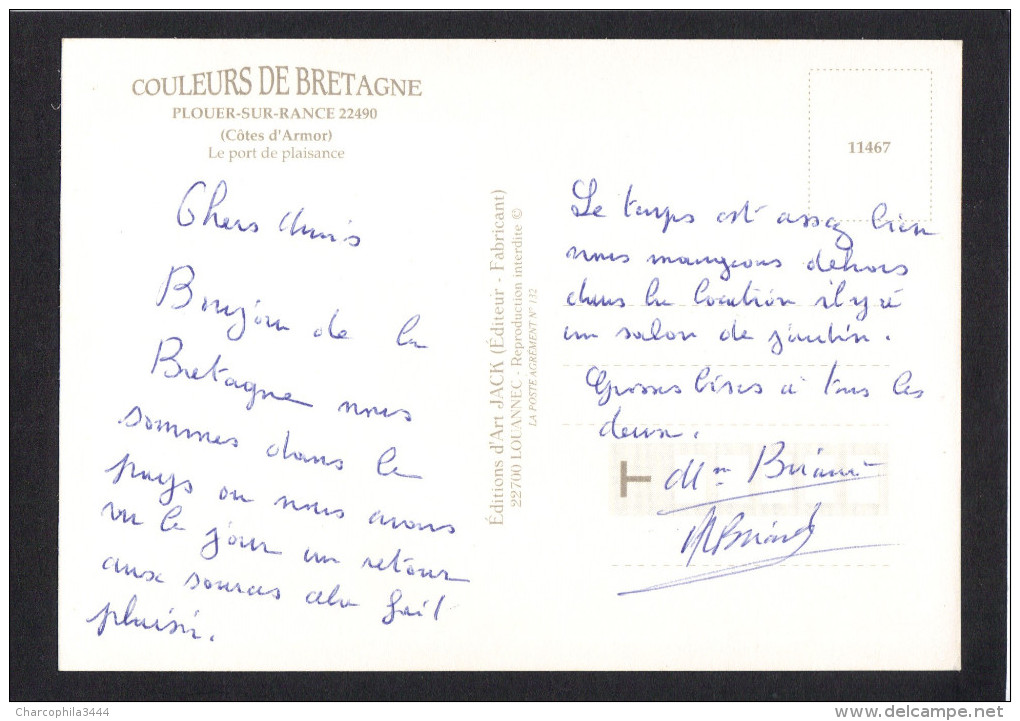 COULEURS DE BRETAGNE
PLOUER-SUR-RANCE 22490
(Côtes d'Armor)
Le port de plaisance
Chers Amis
Bonjour de la
Bretagne nous
sommes dans le
pays ou nous avons
vu le jour un retour
aux sources cela fait
plaisir.
Éditions d'Art JACK (Éditeur - Fabricant)
22700 LOUANNEC - Reproduction interdite ©
LA POSTE AGRÉMENT N° 132
11467
Le temps est assez bien
nous mangeons dehors
dans la location il y a
un salon de jardin.
Grosses bises a tous les
deux.
Charcophila3444
www.delcampe.net